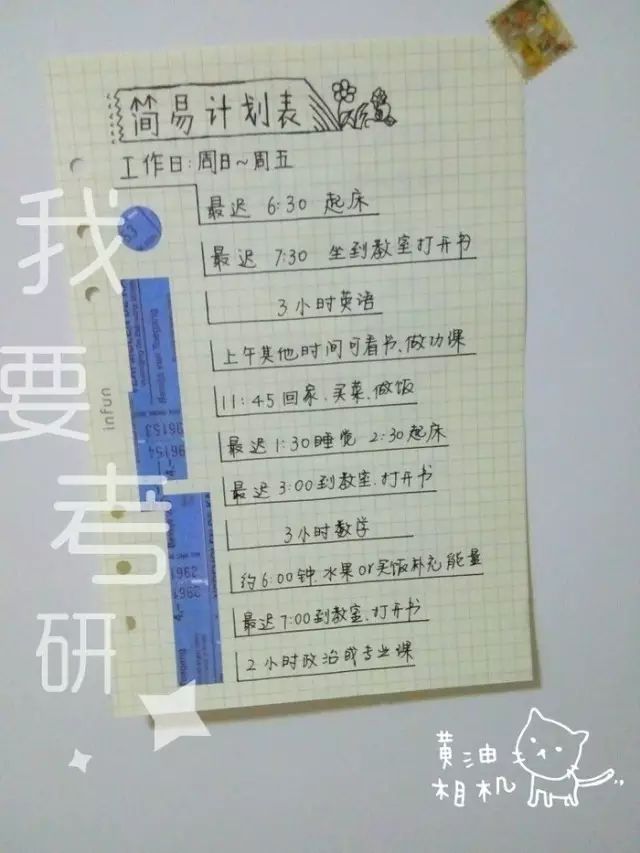 简易计划表
工作日:周日~周五
最迟 6:30 起床
最迟 7:30 坐到教室打开书
3小时英语
上午其他时间可看书、做功课
11:45回家、买菜、做饭
最迟1:30睡觉 2:30起床
最迟3:00到教室、打开书
3小时数学
约6:00钟、水果or买饭补充能量
最迟7:00到教室、打开书
2小时政治或专业课
我要考研
infun
53
96153
96154
2961
2961
黄油
相机